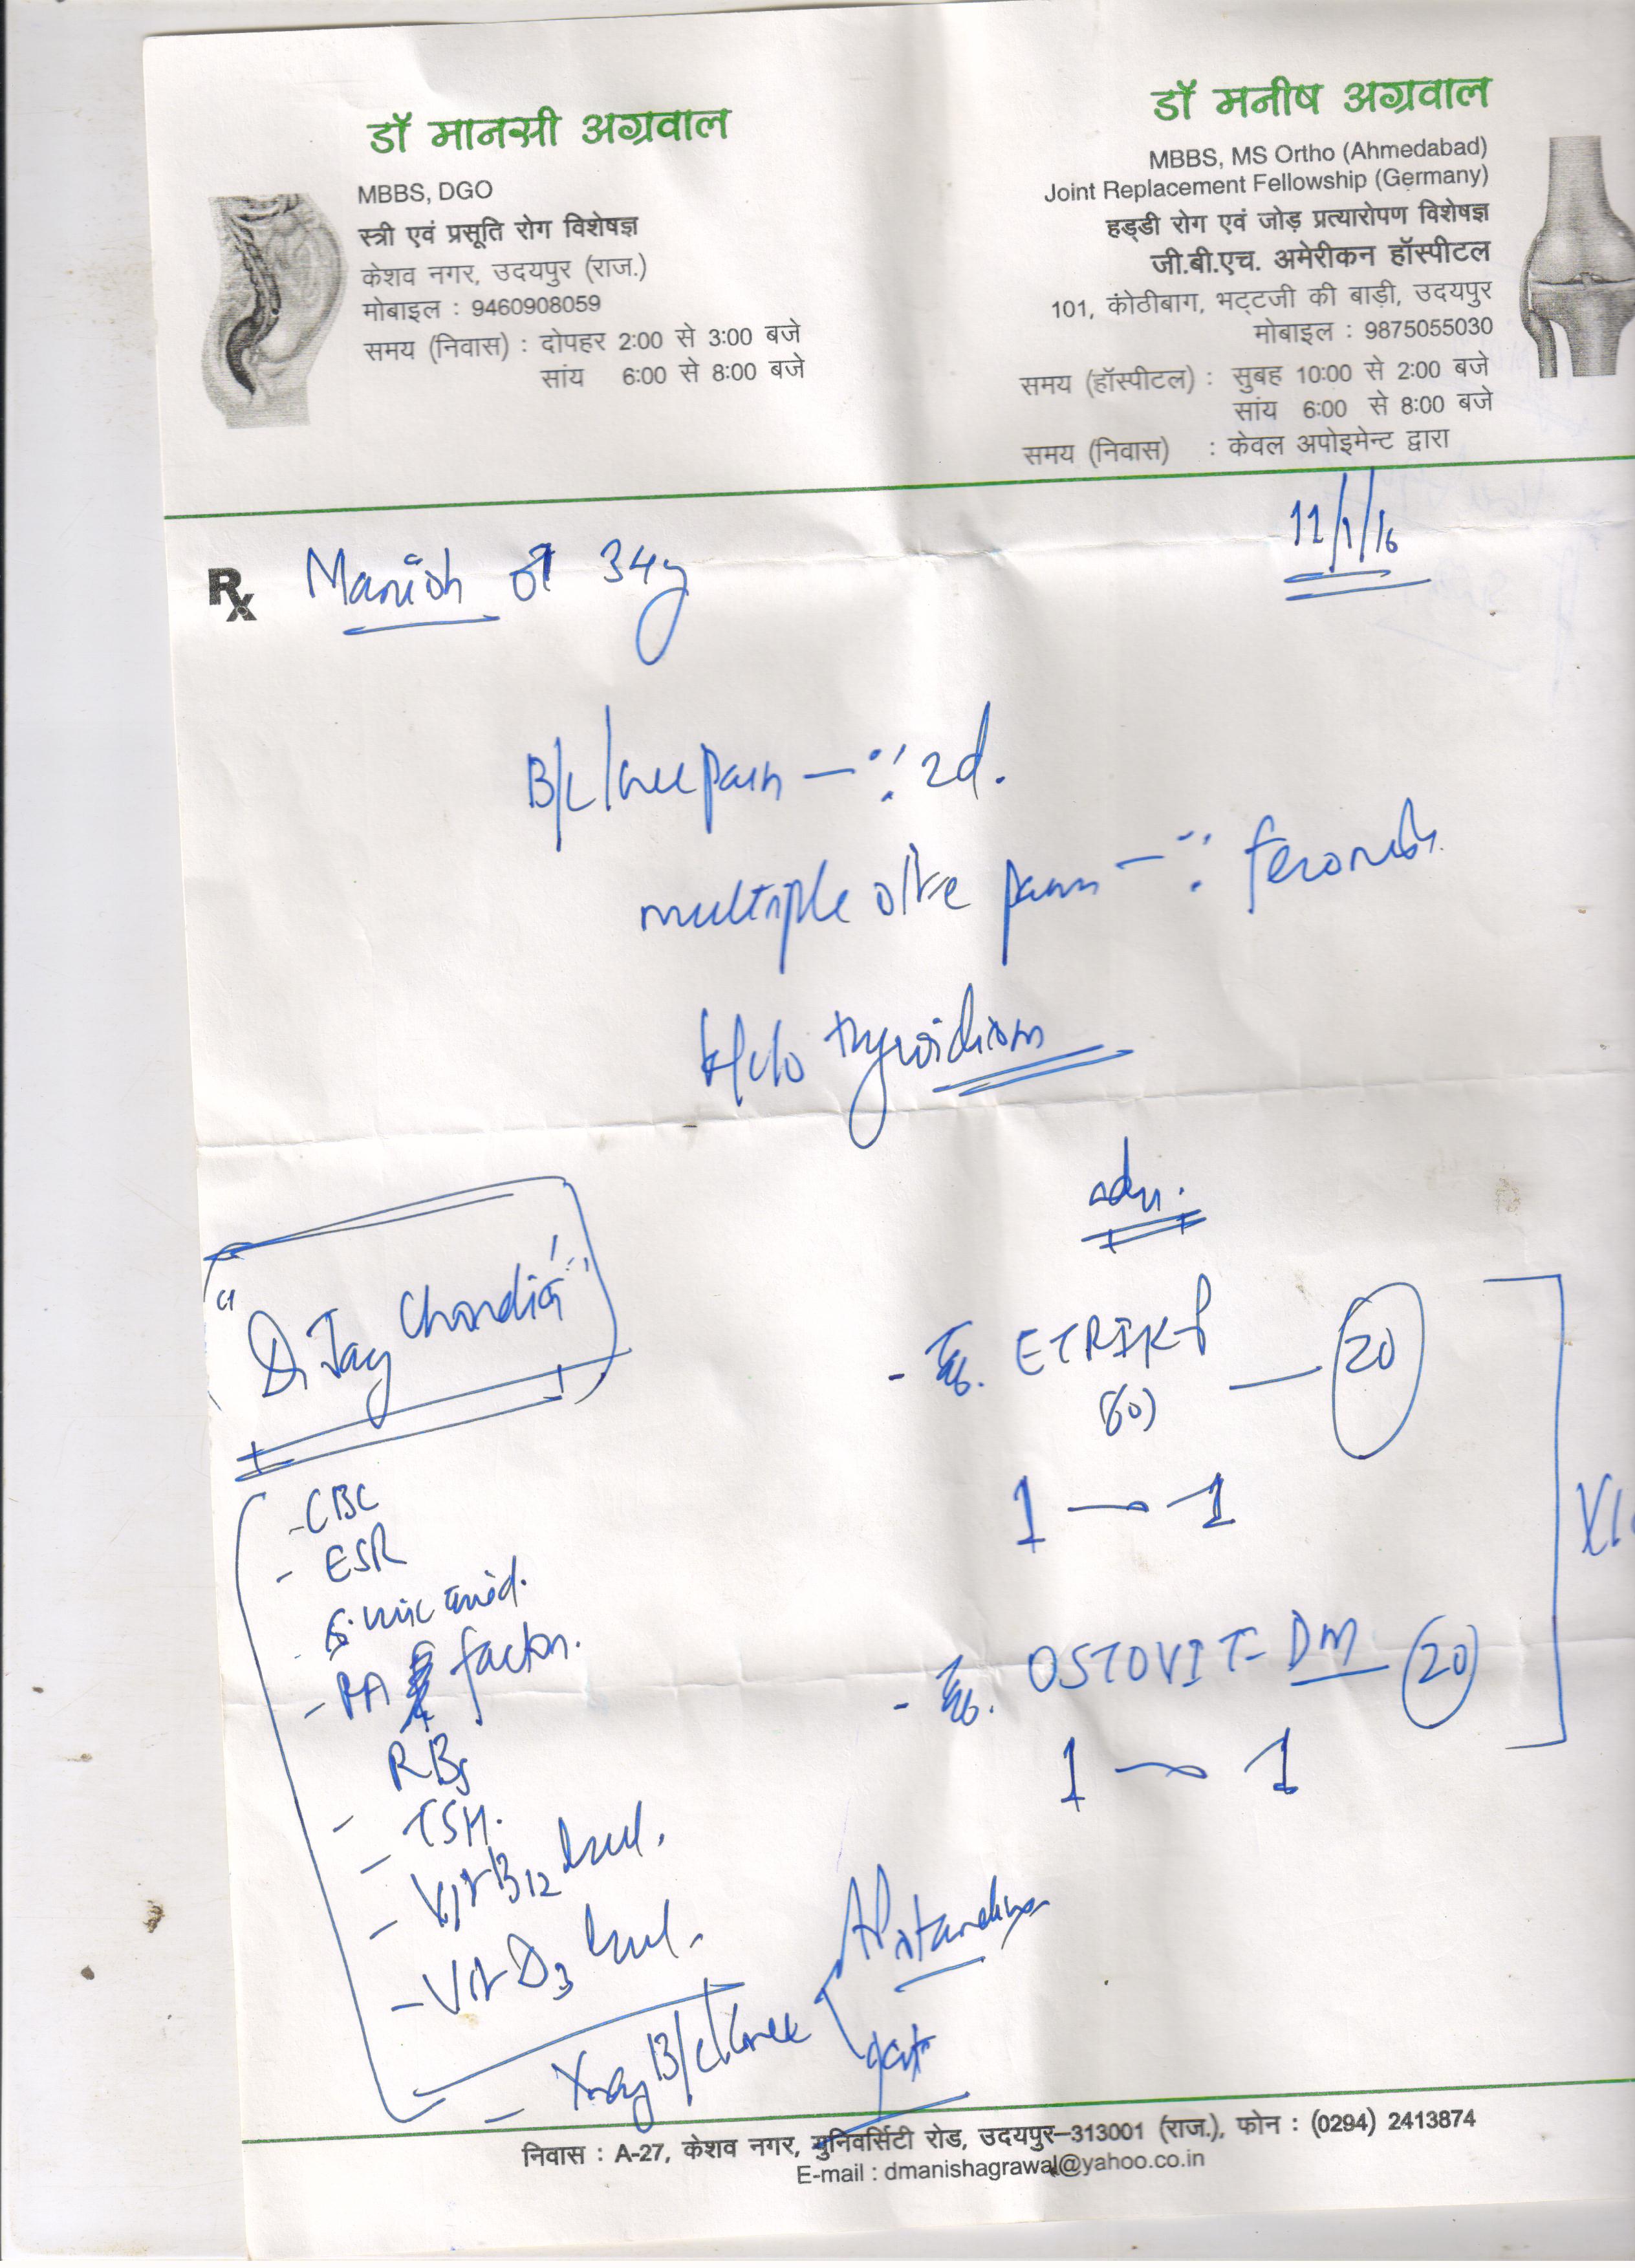 डॉ मानसी अग्रवाल
MBBS, DGO
स्त्री एवं प्रसूति रोग विशेषज्ञ
केशव नगर, उदयपुर (राज.)
मोबाइल : 9460908059
समय (निवास) : दोपहर 2:00 से 3:00 बजे
सांय 6:00 से 8:00 बजे
डॉ मनीष अग्रवाल
MBBS, MS Ortho (Ahmedabad)
Joint Replacement Fellowship (Germany)
हड्डी रोग एवं जोड़ प्रत्यारोपण विशेषज्ञ
जी.बी.एच. अमेरीकन हॉस्पीटल
101, कोंठीबाग, भट्टजी की बाड़ी, उदयपुर
मोबाइल : 9875055030
समय (हॉस्पीटल) : सुबह 10:00 से 2:00 बजे
सांय 6:00 से 8:00 बजे
समय (निवास) : केवल अपोइमेन्ट द्वारा
11/1/16
Rx Manish 34y
B/L knee pain — 2d.
multiple site pain —
K/c/o thyroidism
adv.
"Dr Jay Chordia"
- Tab. ETRIK-P — 20
1 — 1
- CBC
- ESR
S. uric acid.
- RA factor.
RBS
- TSH.
- Vit B12 level.
- Vit D3 level.
- Tab. OSTOVIT-DM 20
1 — 1
- Xray B/L knee AP standing
lat
निवास : A-27, केशव नगर, युनिवर्सिटी रोड, उदयपुर–313001 (राज.), फोन : (0294) 2413874
E-mail : dmanishagrawal@yahoo.co.in